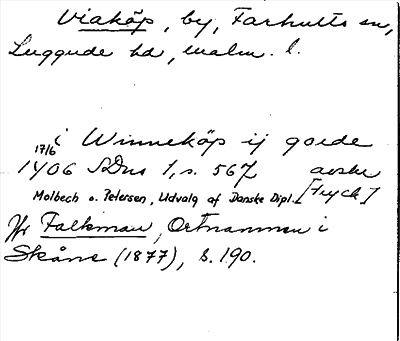 Viaköp, by, Farhults sn,
Luggude hd, Malm. l.
i Winneköp ij gorde
17/6
1406 SDns 1, s. 567 avskr
Molbech o. Petersen, Udvalg af Danske Dipl. [tryck]
Jfr Falkman, Ortnamnen i
Skåne (1877), s. 190.